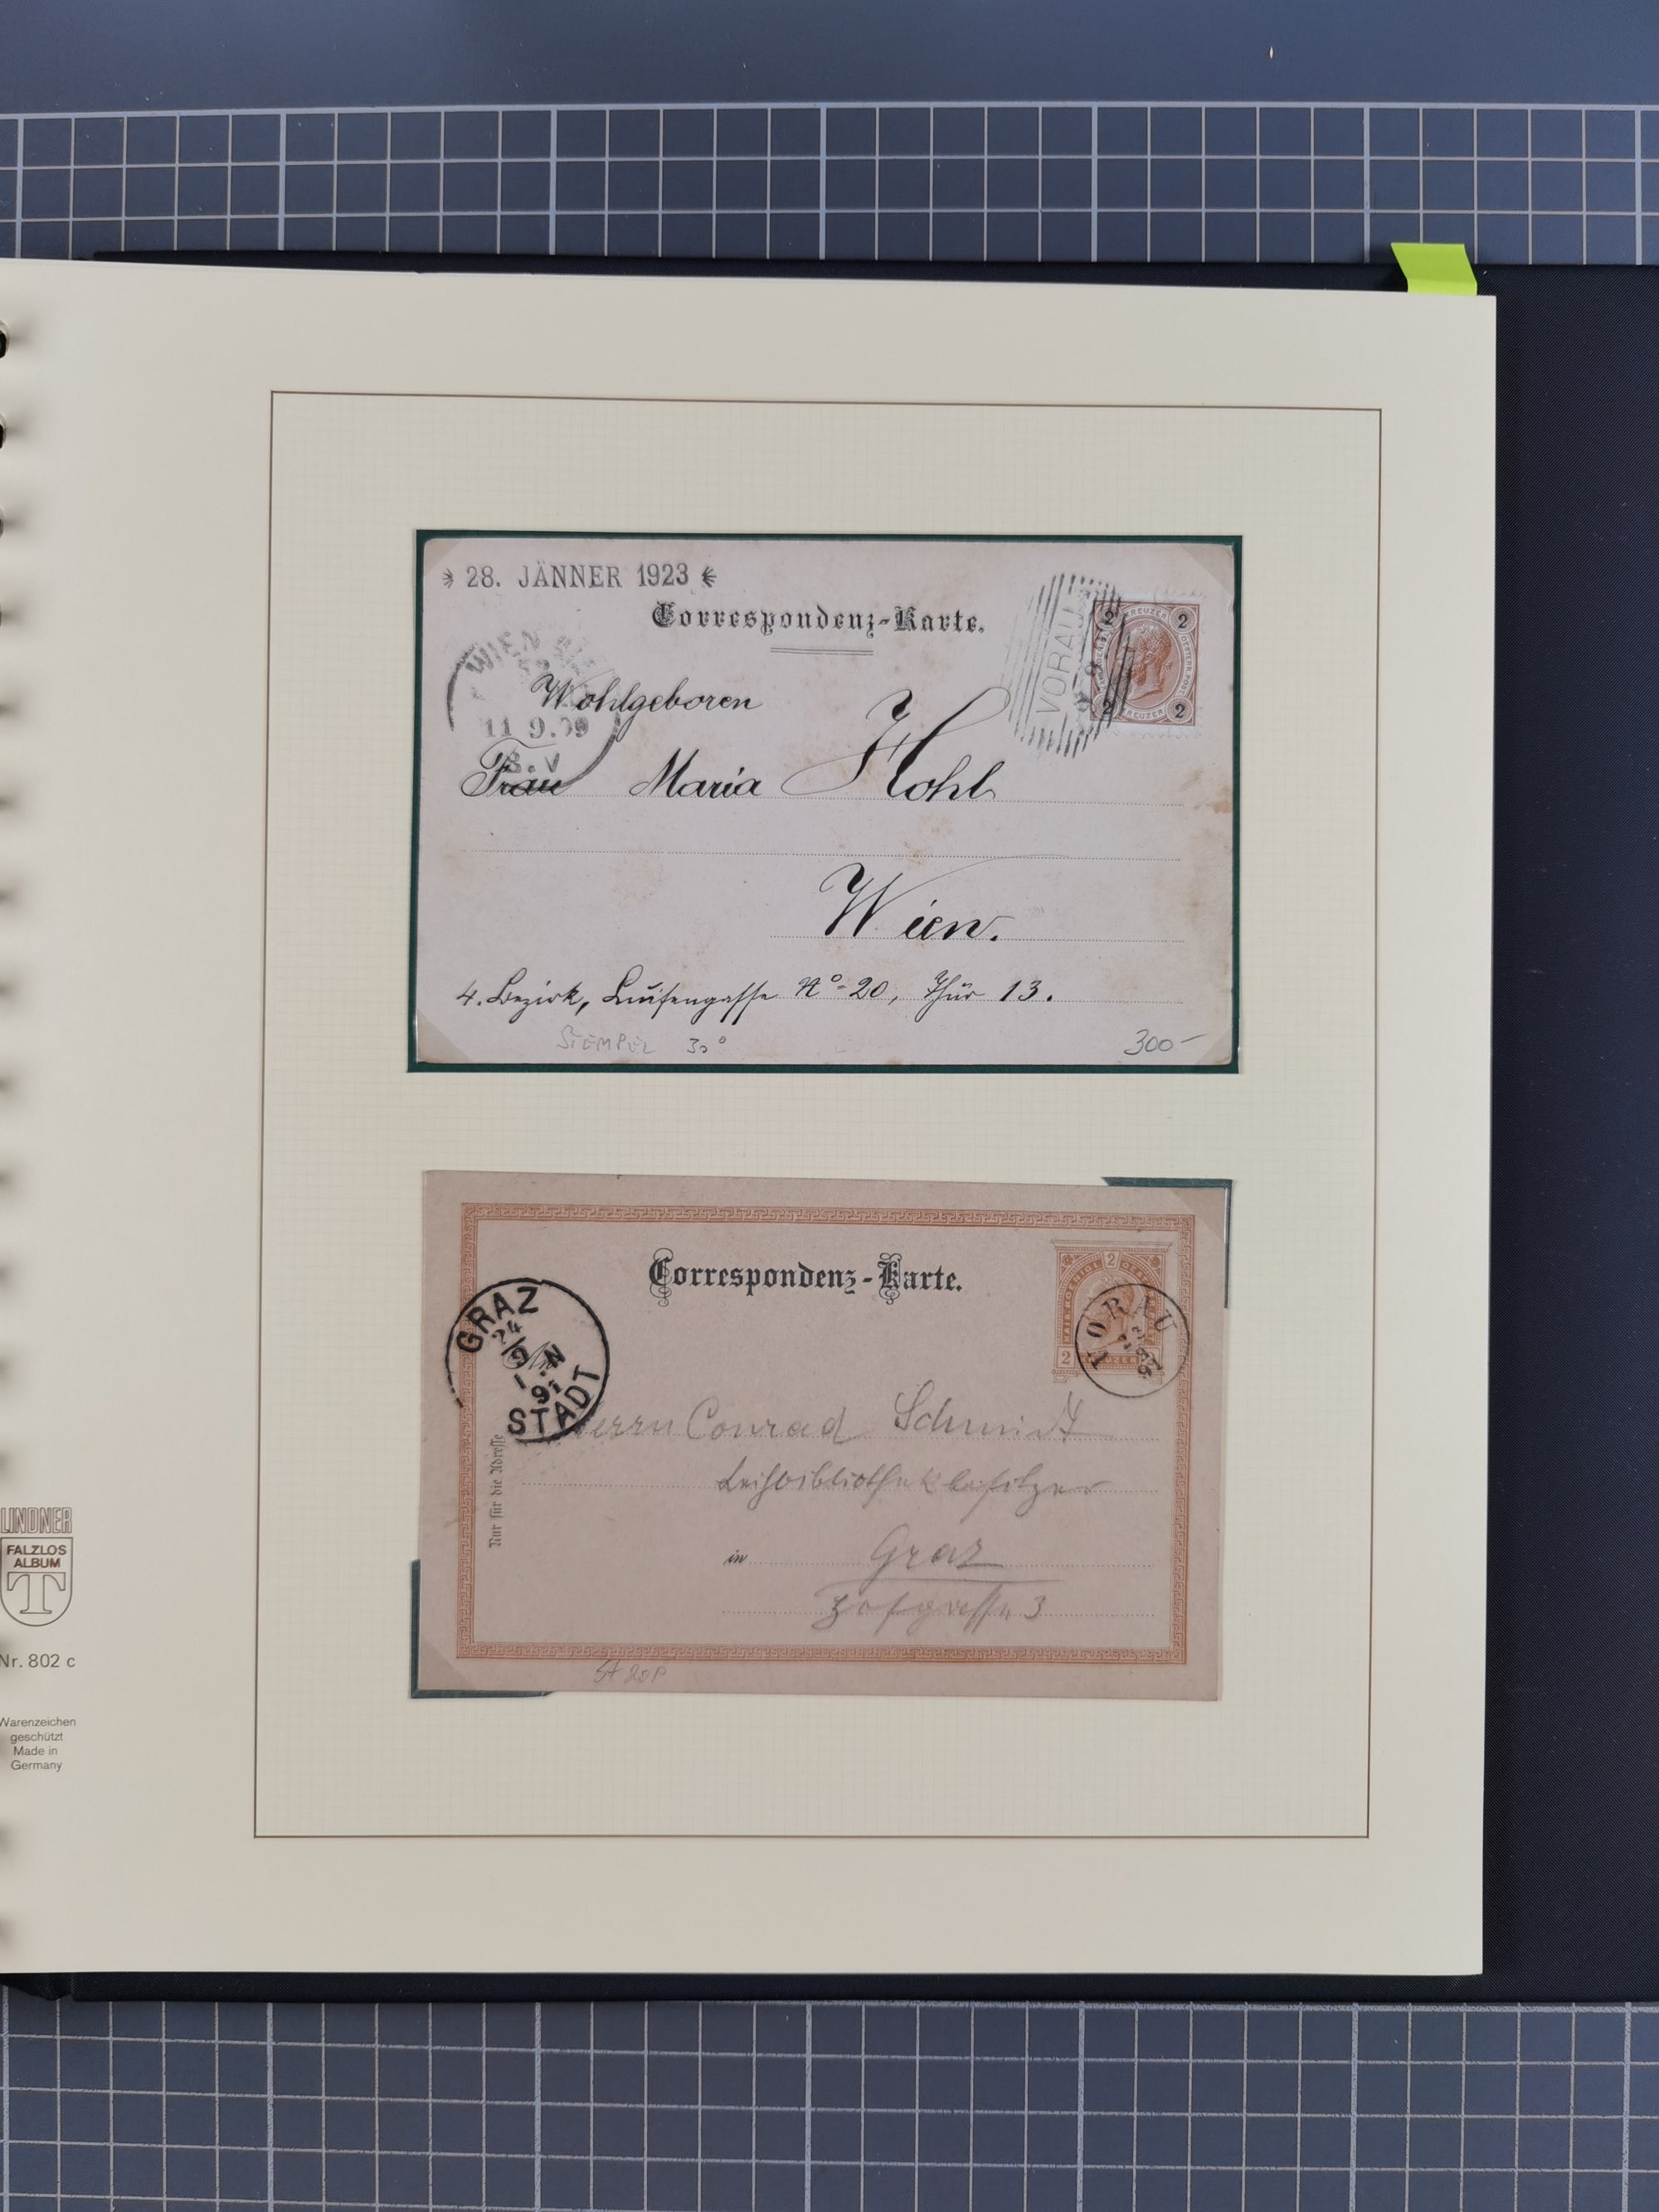 28. JÄNNER 1923
Correspondenz-Karte.
WIEN
11.9.99
8.V
VORAU
2 KREUZER 2
2 KREUZER 2
Wohlgeboren
Frau Maria Hohl
Wien.
4. Bezirk, Luisengasse No 20, Thür 13.
STEMPEL 30°
300-
Correspondenz-Karte.
2
2
VORAU
GRAZ
24
9
1. N
91
STADT
An
Herrn Conrad Schmidt
Leihbibliothekbesitzer
Nur für die Adresse
in Graz
Hofgasse 3
LINDNER
FALZLOS
ALBUM
T
Nr. 802 c
Warenzeichen
geschützt
Made in
Germany